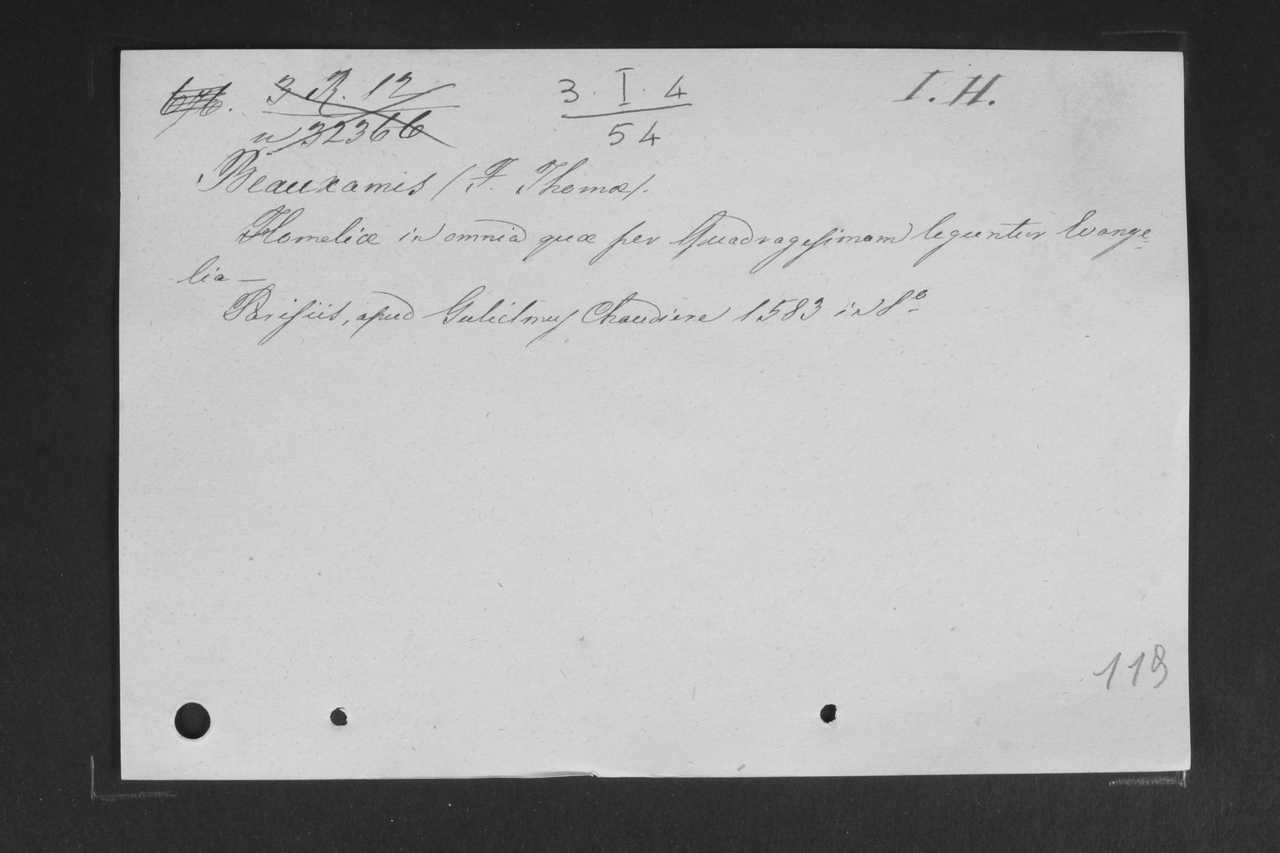 3 R. 12 3 · I · 4 I. H.
nº 32366 54
Beauxamis (F. Thomæ).
Homeliæ in omnia quæ per Quadragesimam leguntur Evange-
lia —
Parisiis, apud Gulielmus Chaudiere 1583 in 8º
119